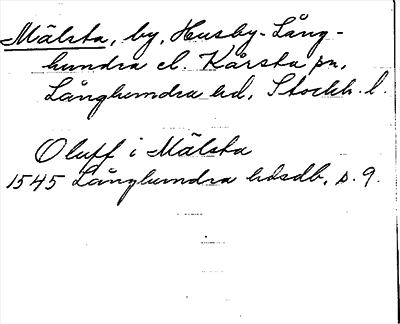 Mälsta, by, Husby-Lång-
hundra el. Kårsta sn,
Långhundra hd, Stockh. l.
Oluff i Mälsta
1545 Långhundra hdsdb, s. 9.